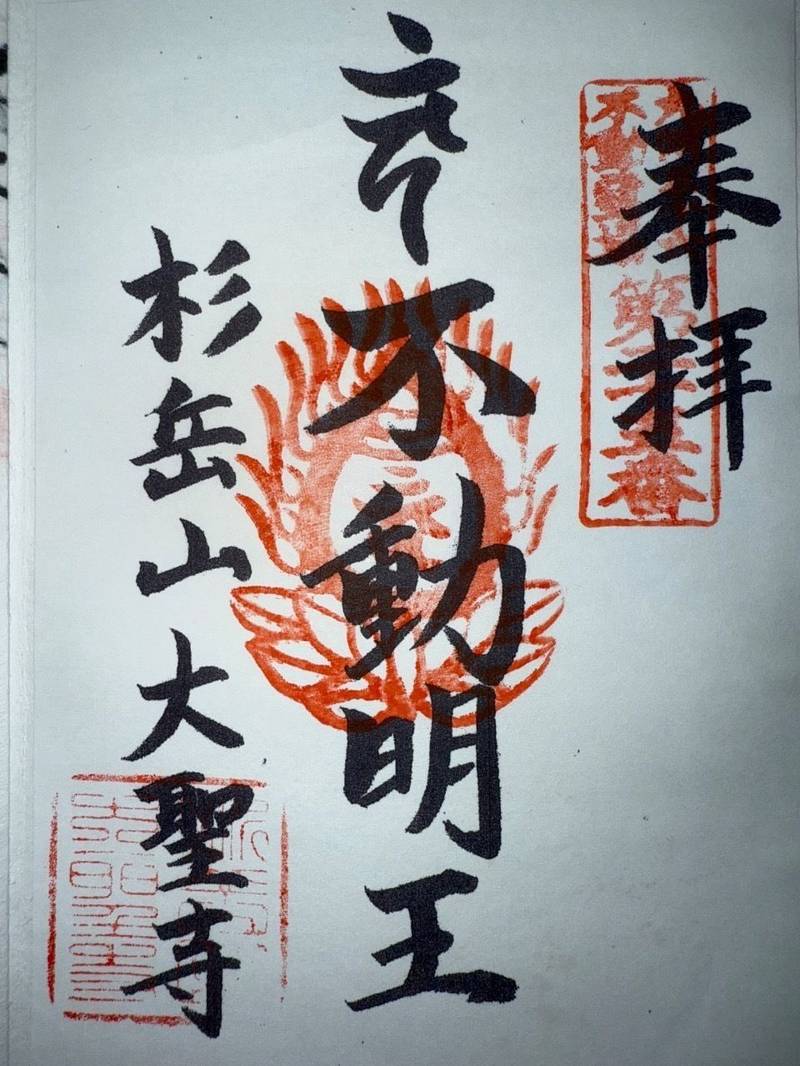 奉拝
不動明王
杉岳山大聖寺